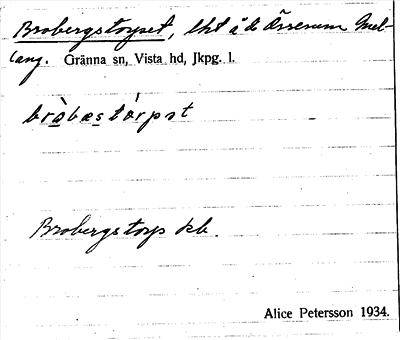 Brobergstorpet, lht å de Örserum Mel-
lang. Gränna sn, Vista hd, Jkpg. l.
bròbæstórpət
Brobergstorp kb.
Alice Petersson 1934.